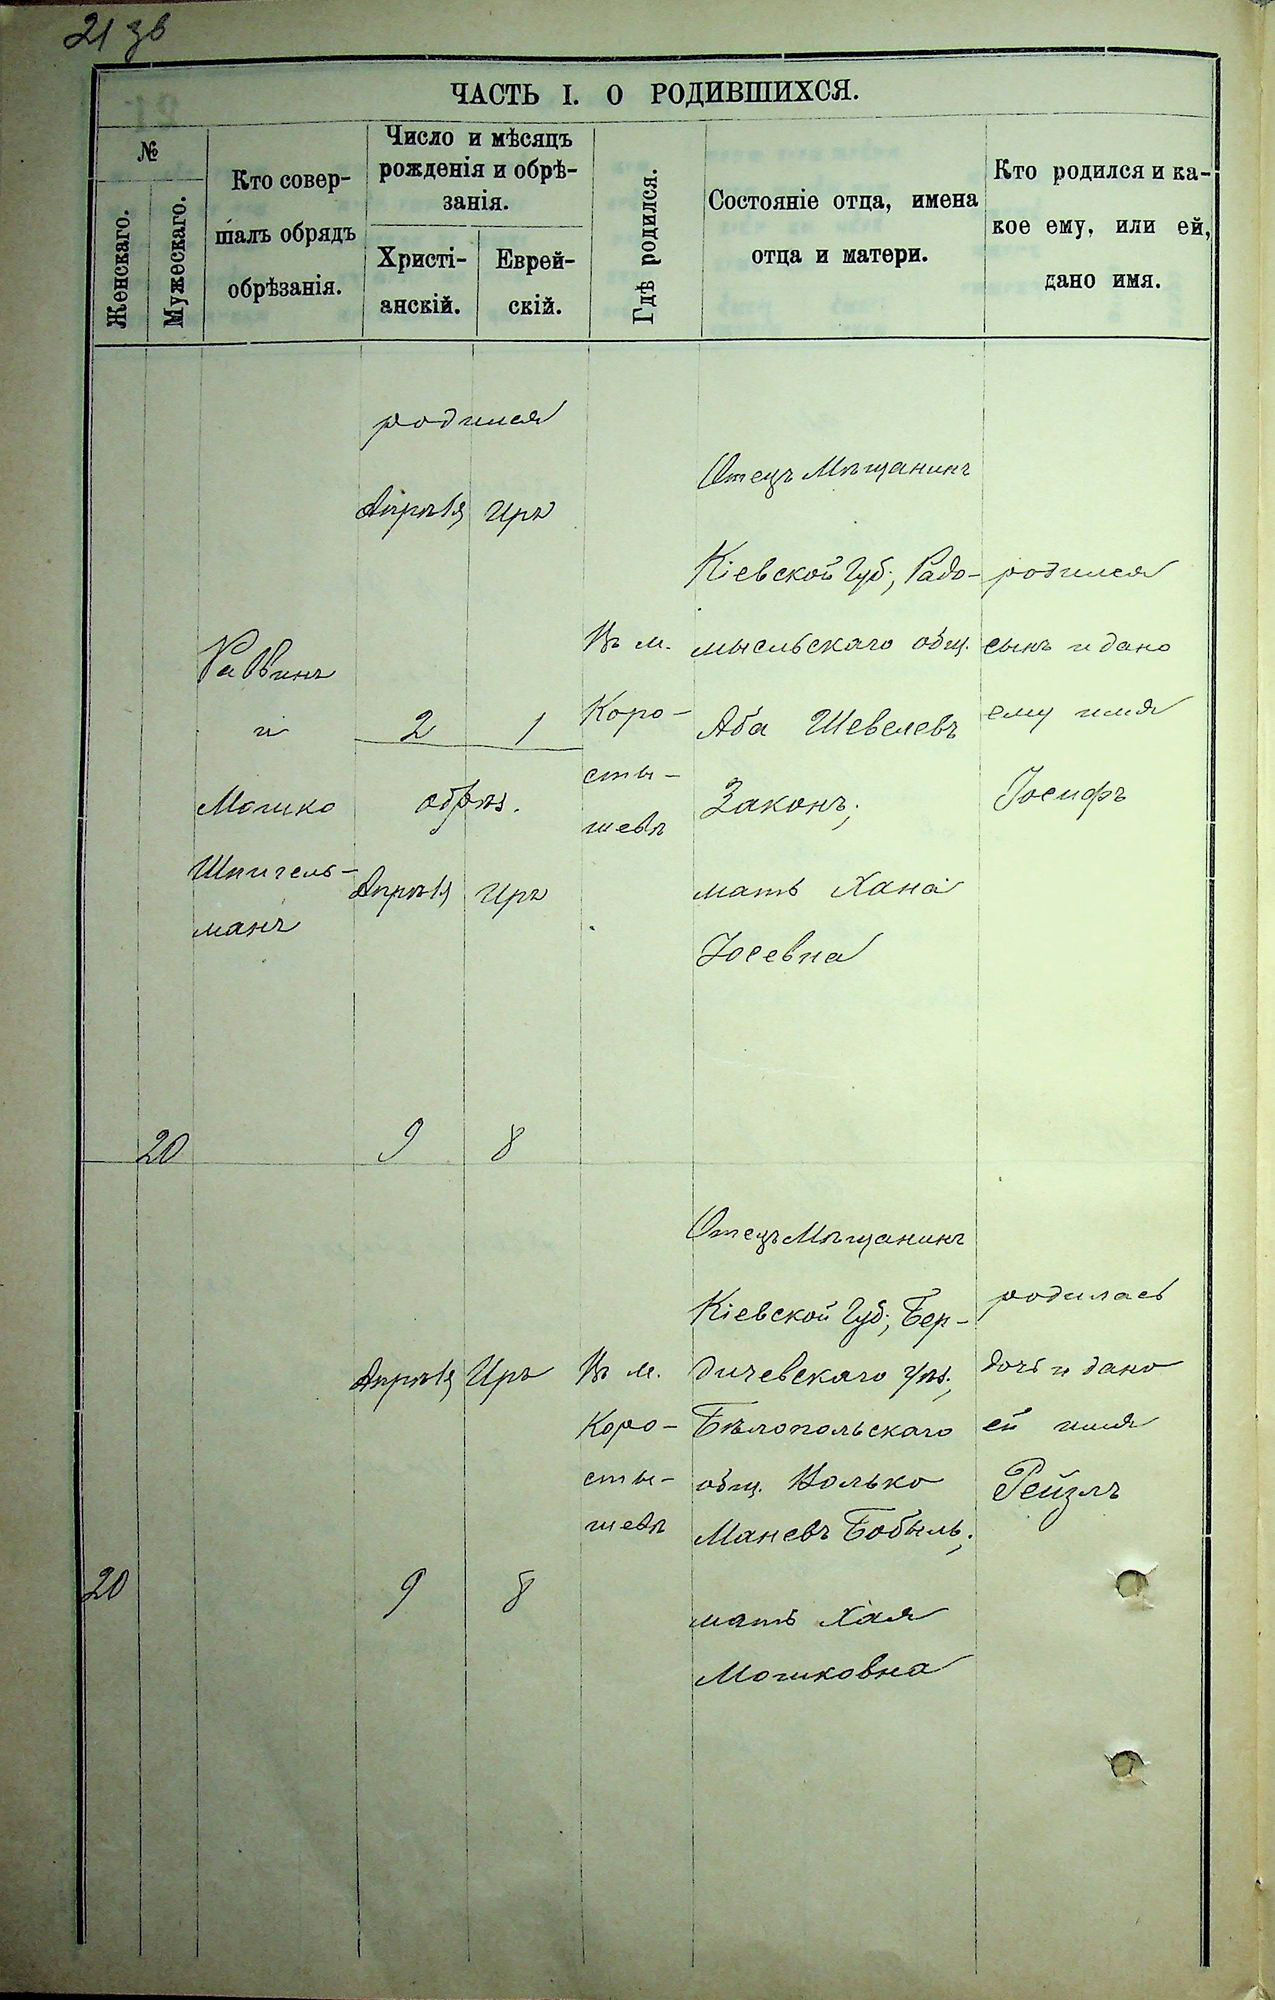 21 зв
ЧАСТЬ I. О РОДИВШИХСЯ.
№
Женскаго.
Мужескаго.
Кто совер-
шалъ обрядъ
обрѣзанія.
Число и мѣсяцъ
рожденія и обрѣ-
занія.
Христі-
анскій.
Еврей-
скій.
Гдѣ родился.
Состояніе отца, имена
отца и матери.
Кто родился и ка-
кое ему, или ей,
дано имя.
20
Раввинъ
и
Мошко
Шпигель-
манъ
родился
Апрѣля Иръ
2 1
обрѣз.
Апрѣля Иръ
9 8
Въ м.
Коро-
сты-
шевѣ
Отецъ Мѣщанинъ
Кіевской Губ., Радо-
мысльскаго общ.
Аба Шевелевъ
Законъ;
мать Хана
Іосевна
родился
сынъ и дано
ему имя
Іосифъ
20
Апрѣля Иръ
9 8
Въ м.
Коро-
сты-
шевѣ
Отецъ Мѣщанинъ
Кіевской Губ., Бер-
дичевскаго уѣз.,
Бѣлопольскаго
общ. Волько
Маневъ Бобыль;
мать Хая
Мошковна
родилась
дочь и дано
ей имя
Рейзлъ